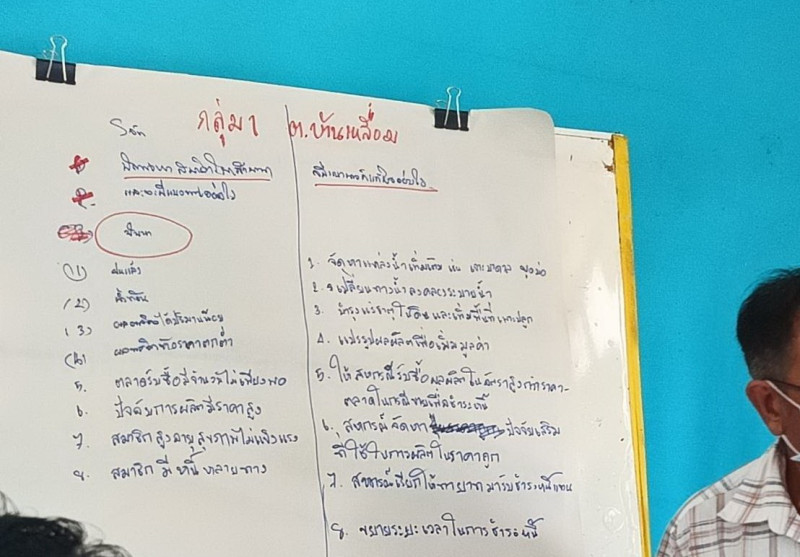 กลุ่ม 1 ต.บ้านเหลื่อม
โจทย์
และจะมีแนวทางอย่างไร
ปัญหา
(1) ฝนแล้ง
(2) น้ำท่วม
(3) ผลผลิตได้ปริมาณน้อย
(4) ผลผลิตมีราคาตกต่ำ
5. ตลาดรับซื้อมีจำนวนไม่เพียงพอ
6. ปัจจัยการผลิตมีราคาสูง
7. สมาชิกสูงอายุสุขภาพไม่แข็งแรง
8. สมาชิกมีหนี้หลายทาง
1. จัดหาแหล่งน้ำเพิ่มเติม เช่น เจาะบาดาล ขุดบ่อ
2. เปลี่ยนทางน้ำลงคลองระบายน้ำ
3. บำรุงแร่ธาตุในดิน และเพิ่มพื้นที่เพาะปลูก
4. แปรรูปผลผลิตเพื่อเพิ่มมูลค่า
5. ให้สหกรณ์รับซื้อผลผลิตในอัตราสูงกว่าราคา-
ตลาดในกรณีขายเพื่อชำระหนี้
6. สหกรณ์จัดหา ปัจจัยเสริม
ที่ใช้ในการผลิตในราคาถูก
7. สหกรณ์เรียกให้ทายาทมารับชำระหนี้แทน
8. ขยายระยะเวลาในการชำระหนี้